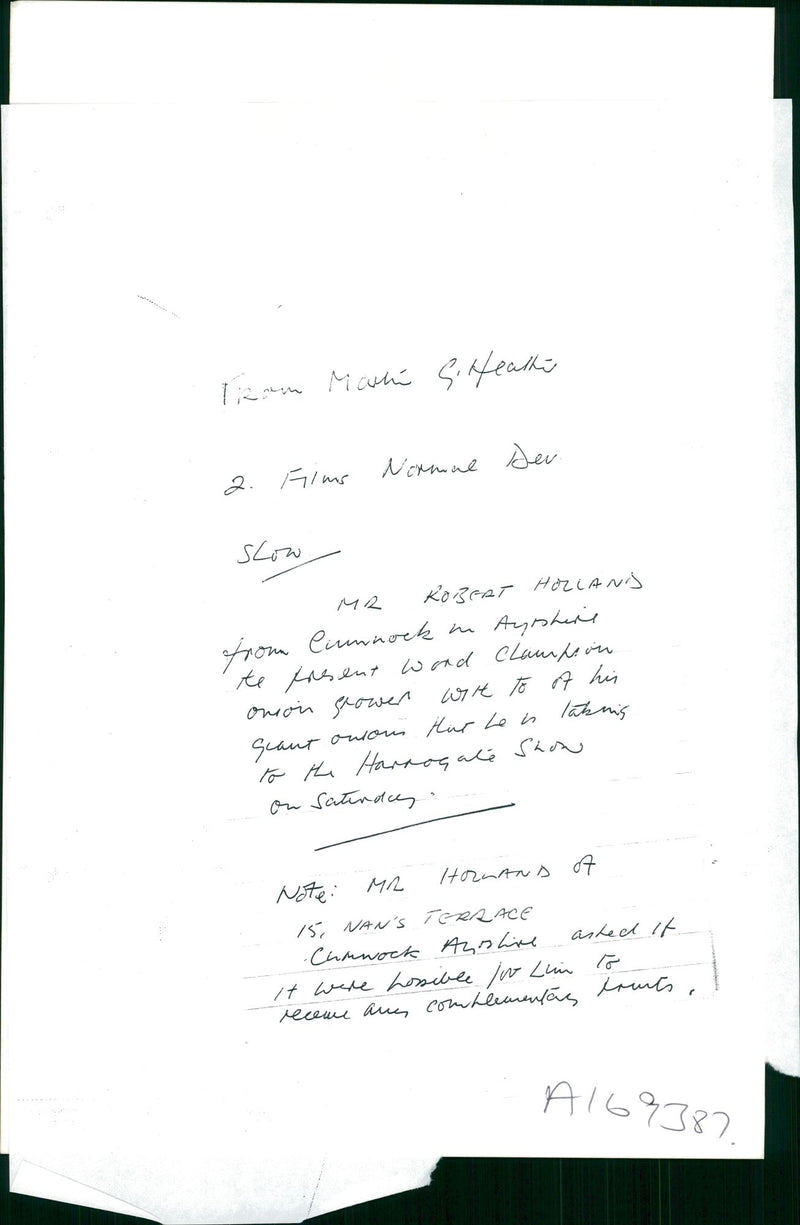 From Martin G. Heathi
2. Films Normal Dev
SLOW
MR ROBERT HOLLAND
from Cumnock in Ayrshire
the present word champion
onion grower with to of his
giant onions that he is taking
to the Harrogate Show
on Saturday.
Note: MR HOLLAND of
15, NAN'S TERRACE
Cumnock Ayrshire asked if
it were possible for him to
receive any complementary prints.
A169387.